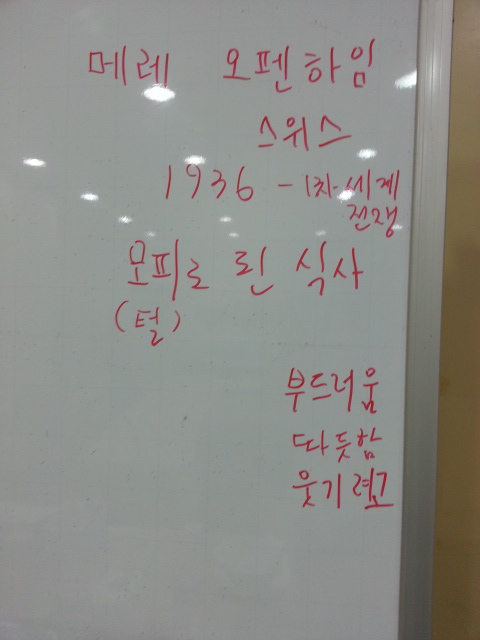 메레 오펜하임
스위스
1936 - 1차 세계
전쟁
모피로 된 식사
(털)
부드러움
따듯함
웃기려고